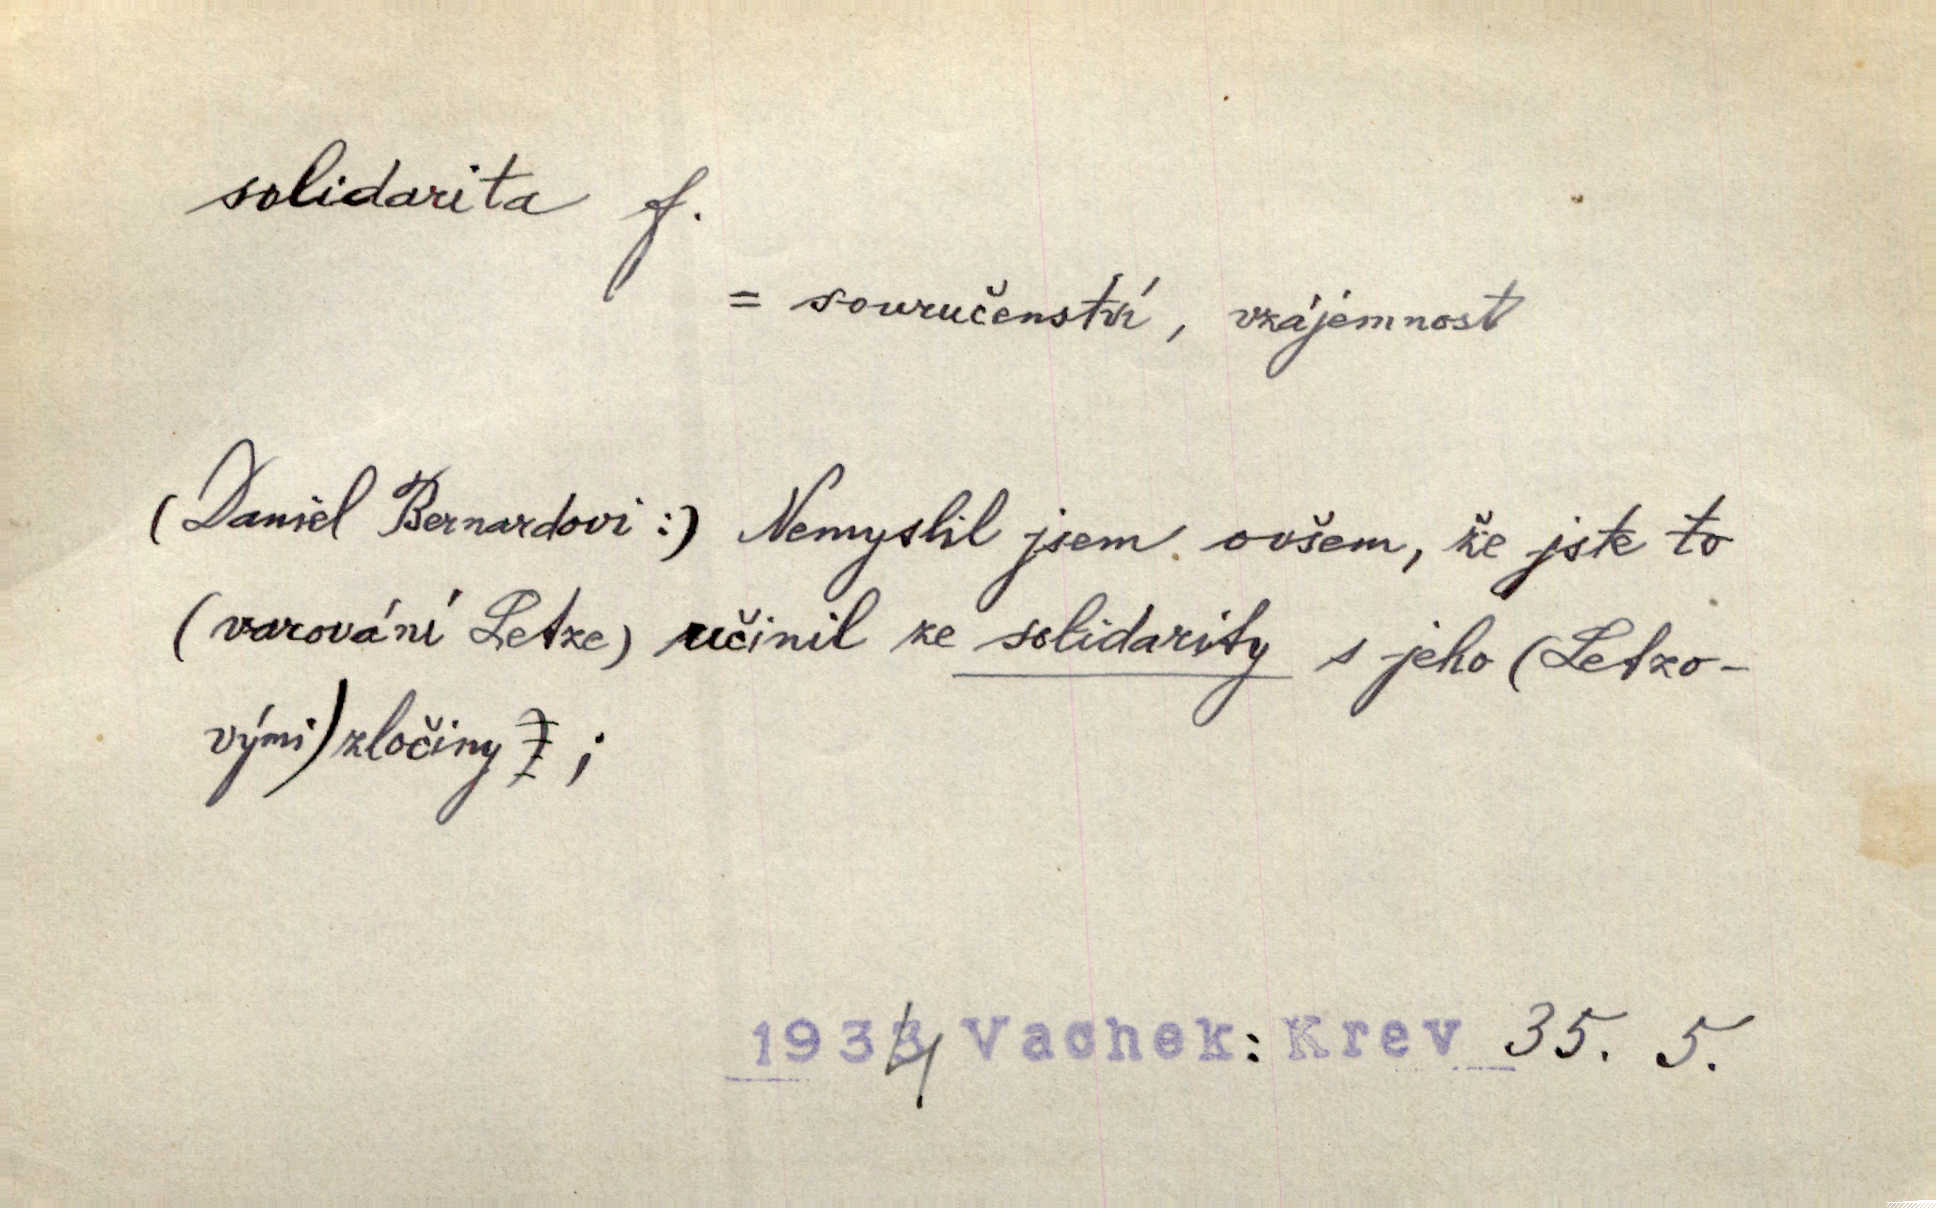 solidarita f.
= souručenství, vzájemnost
(Daniel Bernardovi:) Nemyslil jsem ovšem, že jste to
(varování Letze) učinil ze solidarity s jeho (Letzo-
vými) zločiny;
1934 Vachek: Krev 35. 5.